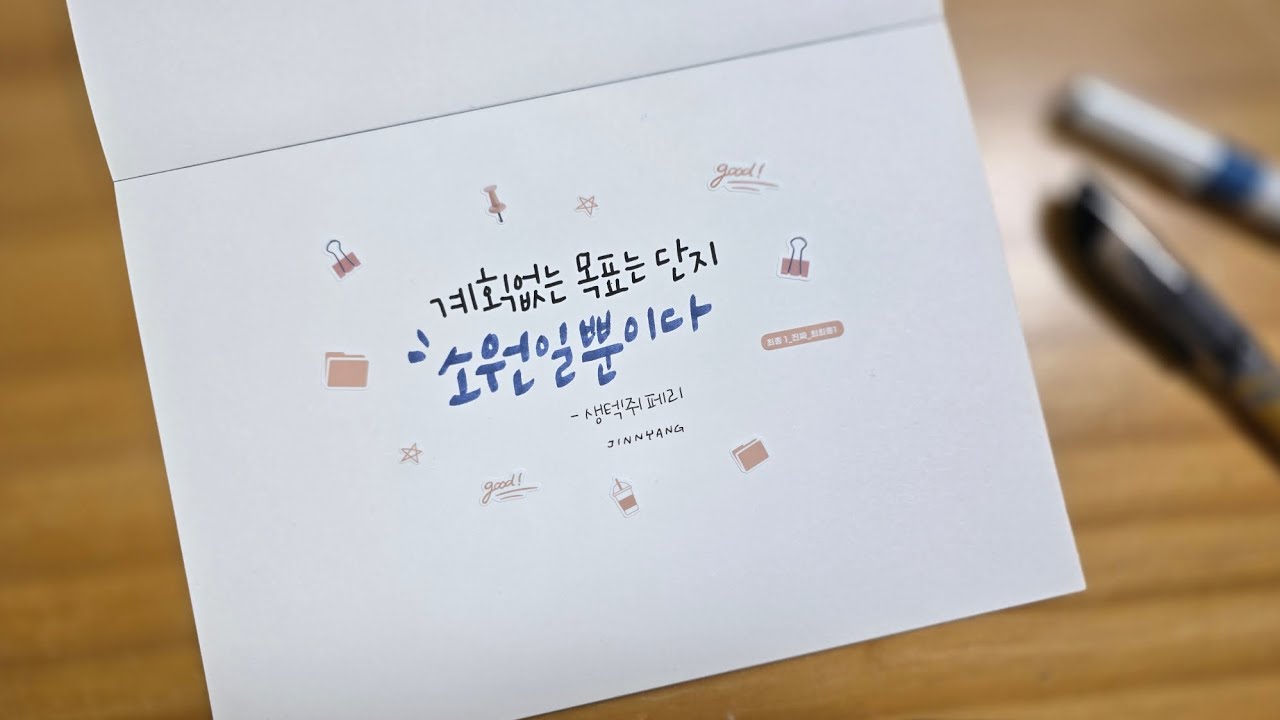 good!
계획없는 목표는 단지
소원일뿐이다
최종 1_진짜_최최종1
- 생텍쥐페리
JINNYANG
good!